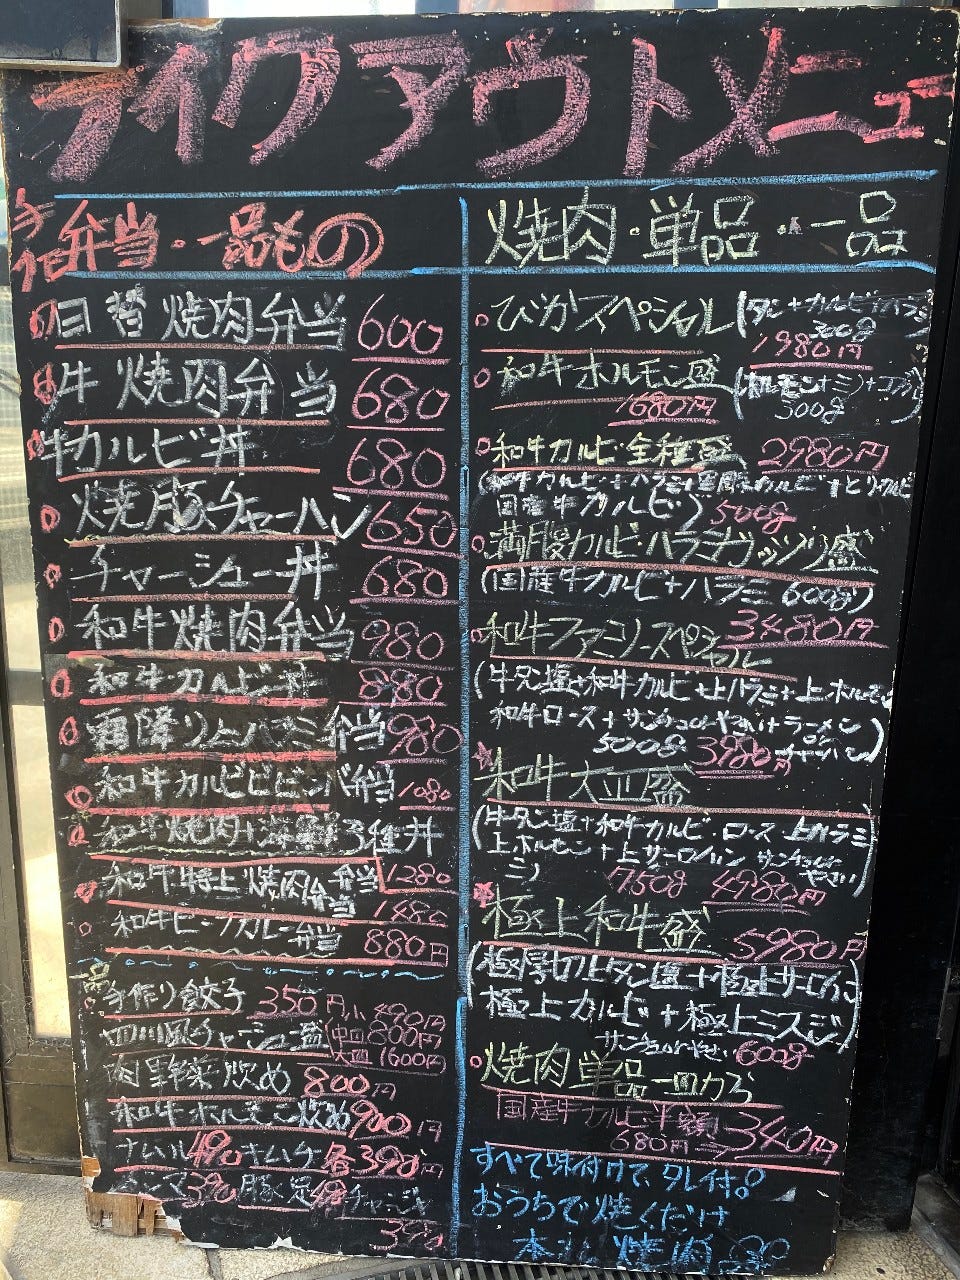 テイクアウトメニュー
手作 弁当・一品もの
日替焼肉弁当 600
牛焼肉弁当 680
牛カルビ丼 680
焼豚チャーハン 650
チャーシュー丼 680
和牛焼肉弁当 980
和牛カルビ丼 880
霜降り上ハラミ弁当 980
和牛カルビビビンバ弁当 1080
和牛焼肉+海鮮3種丼 1280
和牛特上焼肉弁当 1480
和牛ビーフカレー弁当 880円
一品
手作り餃子 350円 小490円
四川風チャーシュー盛 中皿800円
大皿1600円
肉野菜炒め 800円
和牛ホルモン炒め 900円
ナムル 490 キムチ 各390円
390 豚足 チャンジャ
390
焼肉・単品・一品
ぴかスペシャル (タン+カルビ+ハラミ
300g
1980円
和牛ホルモン盛 (ホルモン+ミノ+コブクロ
1680円 500g)
和牛カルビ全種盛 2980円
国産牛カルビ) 500g
満腹カルビ・ハラミガッツリ盛
(国産牛カルビ+ハラミ 600g)
3480円
和牛ファミリースペシャル
(牛タン塩+和牛カルビ+上ハラミ+上ホルモン
和牛ロース+サンチュorやさい+ラーメン
500g 3980円 チャーハン)
和牛大皿盛
(牛タン塩+和牛カルビ・ロース・上ハラミ
上ホルモン+上サーロイン サンチュor
ミノ 750g 4980円 やさい)
極上和牛盛 5980円
(極厚切上タン塩+極上サーロイン
極上カルビ+極上ミスジ)
サンチュorやさい 600g
焼肉単品一皿から
国産牛カルビ半額 340円
680円
すべて味付けで、タレ付。
おうちで焼くだけ
焼肉